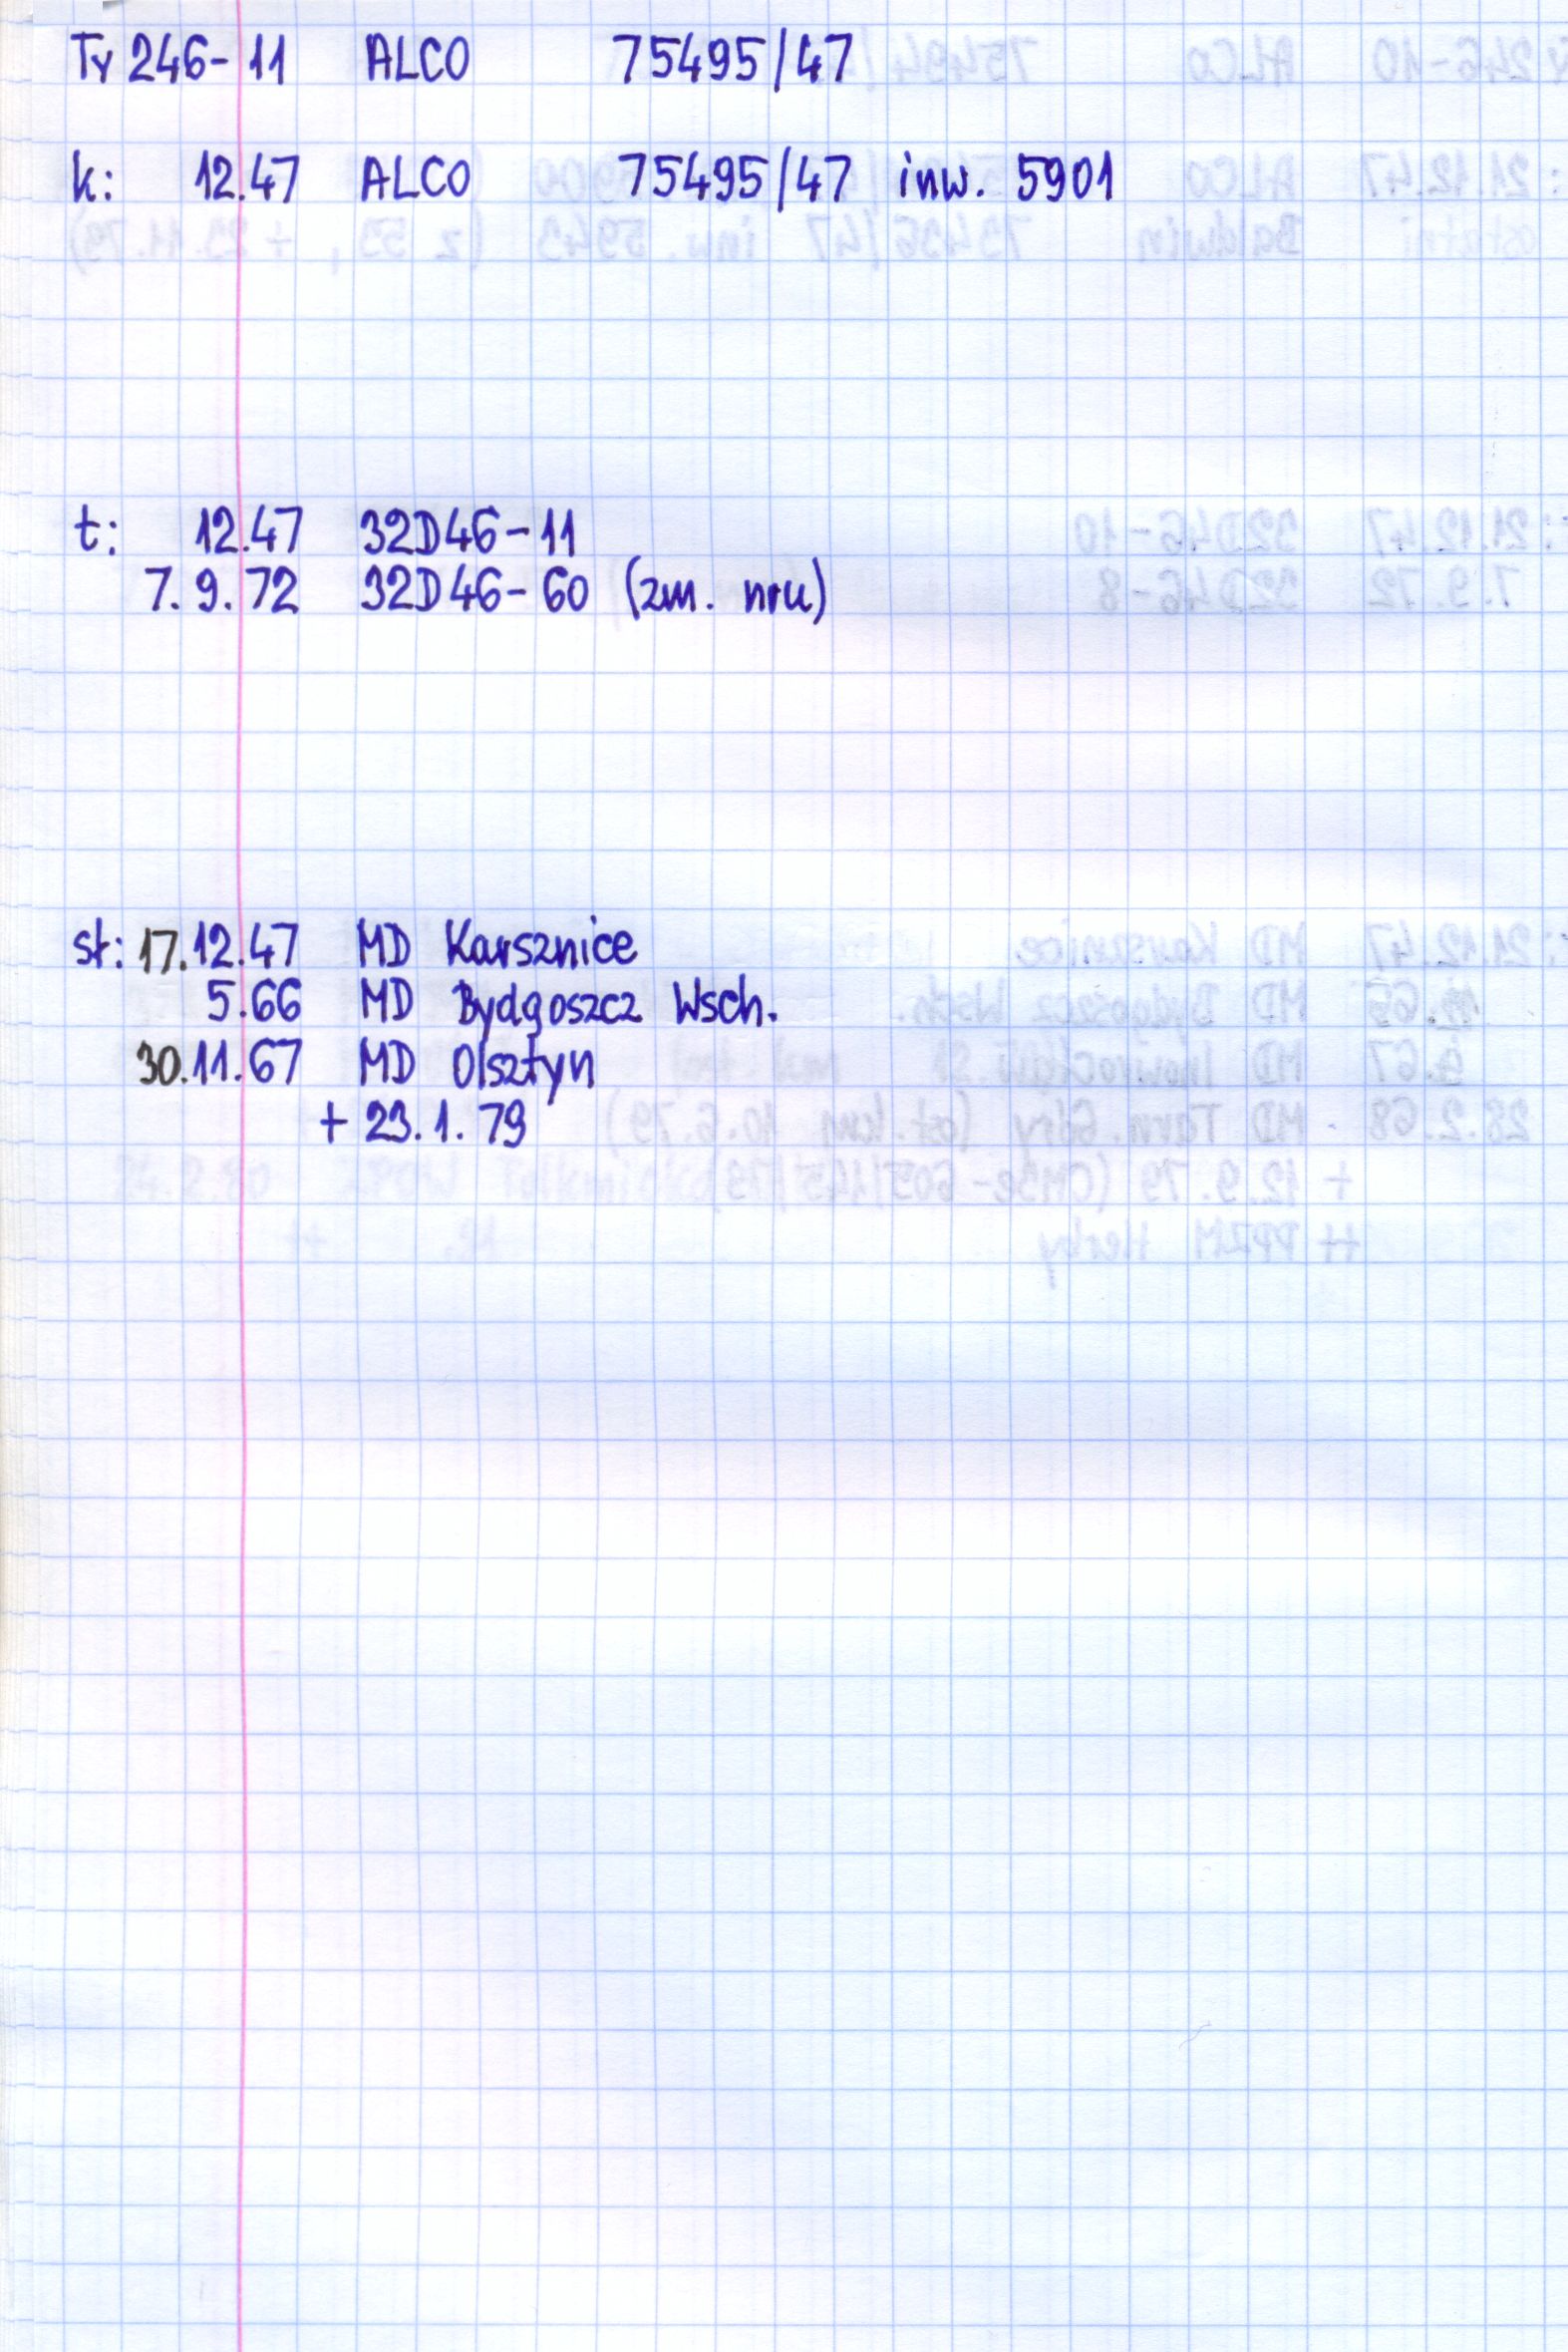 Ty 246-11 ALCO 75495/47
k: 12.47 ALCO 75495/47 inw. 5901
t: 12.47 32D46-11
7.9.72 32D46-60 (zm. nru)
st: 17.12.47 MD Karsznice
5.66 MD Bydgoszcz Wsch.
30.11.67 MD Olsztyn
+ 23.1.79